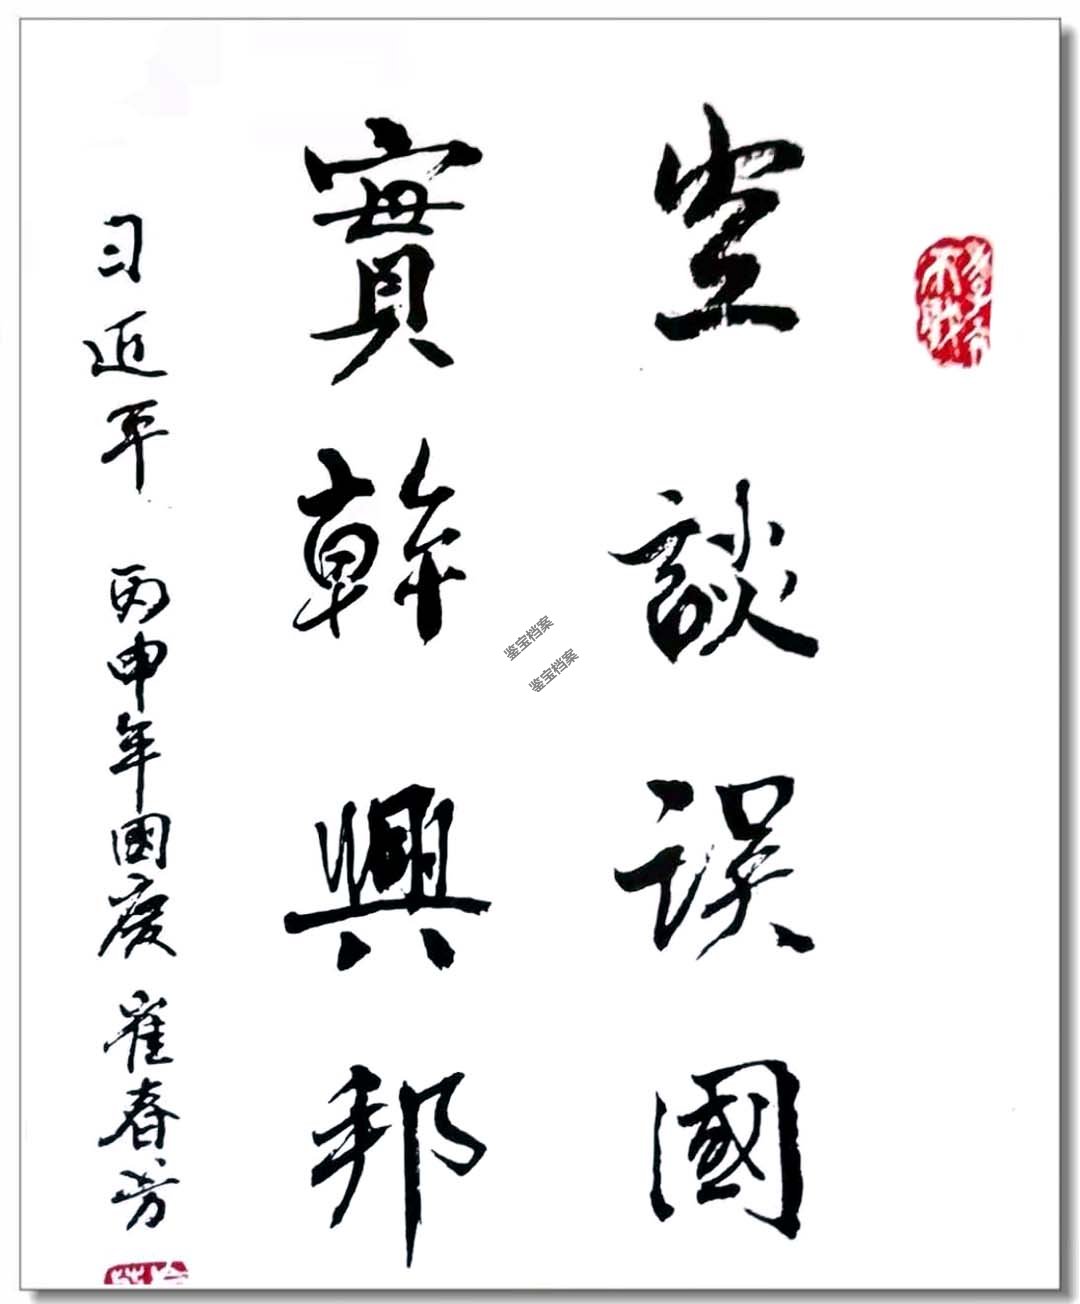 空談误國
實幹興邦
习近平 丙申年國慶 崔春芳
鉴宝档案
鉴宝档案